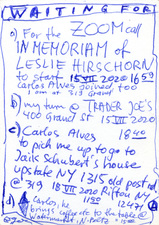 WAITING FOR:
a) For the ZOOM call
IN MEMORIAM of
LESLIE HIRSCHORN
to start 15 VII 2020 16 59
Carlos Alves joined too
I am at 319 Grand
b) my turn @ TRADER JOE'S
400 Grand ST 15 VII 2020
c) Carlos Alves 18 40
to pick me up to go to
Jaik Schubert's House
upstate NY 1315 old post rd
@ 319 18 VII 2020 Rifton NY
d) Carlos, he 12471
brings coffee to the table @